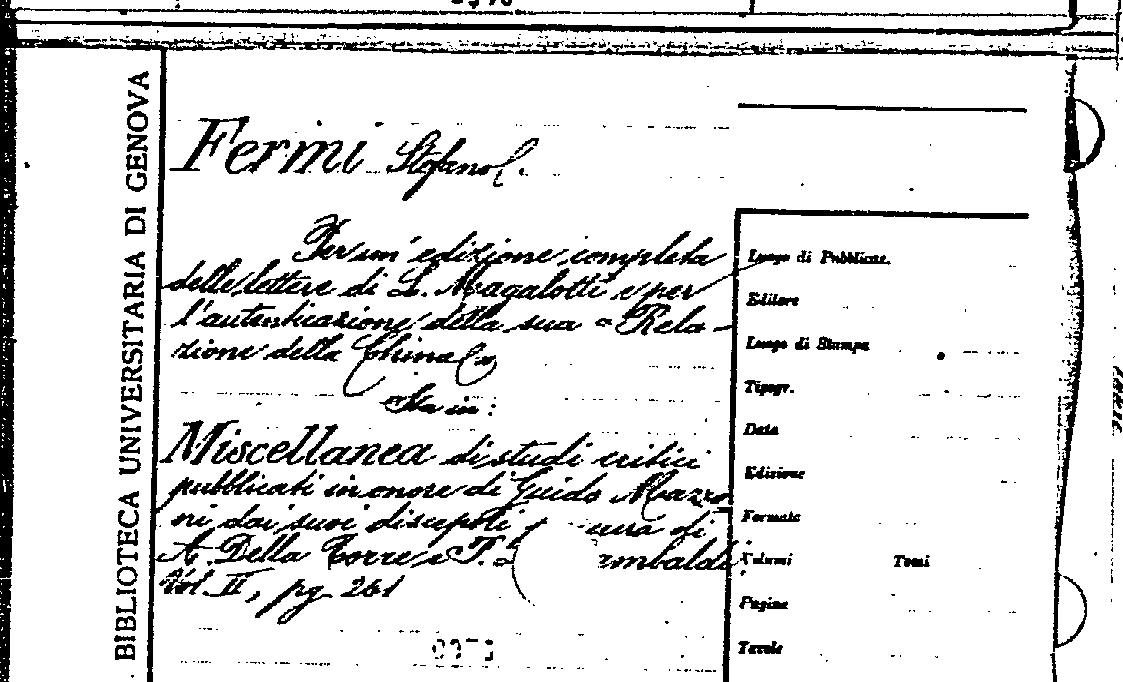 BIBLIOTECA UNIVERSITARIA DI GENOVA
Fermi Stefano.
Per un' edizione completa
delle lettere di L. Magalotti e per
l'autenticazione della sua "Rela-
zione della China"
Sta in:
Miscellanea di studi critici
pubblicati in onore di Guido Mazzo
ni dai suoi discepoli cura di
A. Della Torre e P.
Vol. II, pg. 261
Luogo di Pubblicaz.
Editore
Luogo di Stampa
Tipogr.
Data
Edizione
Formato
Volumi Tomi
Pagine
Tavole